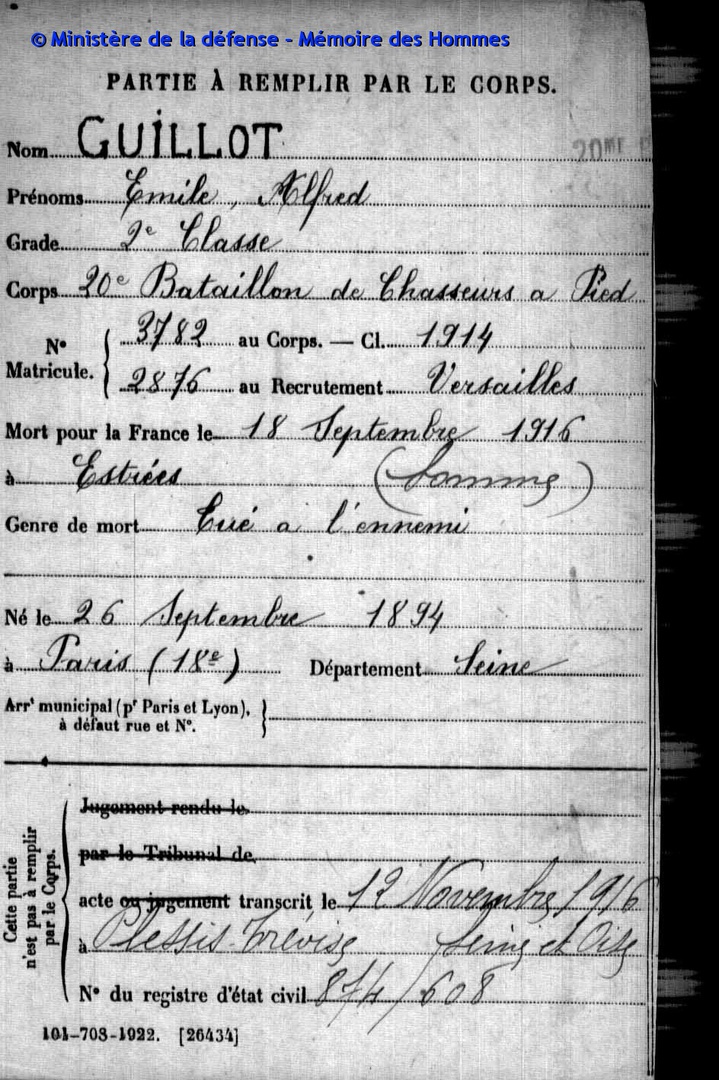 © Ministère de la défense - Mémoire des Hommes
PARTIE À REMPLIR PAR LE CORPS.
Nom GUILLOT
20ME
Prénoms Emile, Alfred
Grade 2e Classe
Corps 20e Bataillon de Chasseurs a Pied
N° Matricule. { 3782 au Corps. — Cl. 1914
2876 au Recrutement Versailles
Mort pour la France le 18 Septembre 1916
à Estrées (Somme)
Genre de mort Tué a l'ennemi
Né le 26 Septembre 1894
à Paris (18e) Département Seine
Arrt municipal (pr Paris et Lyon),
à défaut rue et N°. }
Cette partie n'est pas à remplir par le Corps.
Jugement rendu le
par le Tribunal de
acte ou jugement transcrit le 12 Novembre 1916
à Plessis-Trévise Seine et Oise
N° du registre d'état civil 874/608
101-708-1922. [26434]